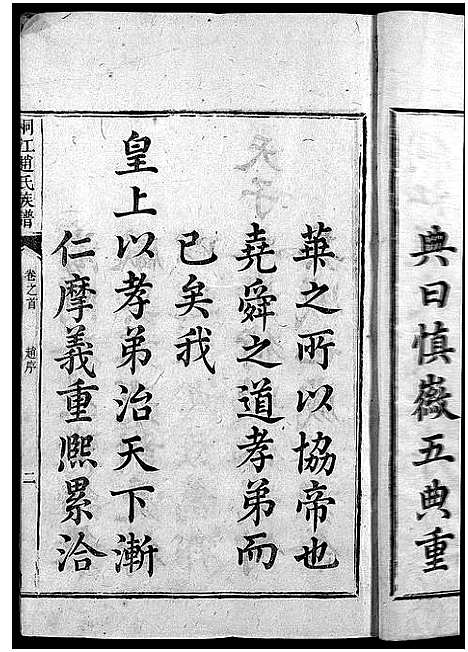 典曰慎徽五典重
華之所以協帝也
堯舜之道孝弟而
已矣我
皇上以孝弟治天下漸
仁摩義重熈累洽
桐江趙氏族譜
卷之首
趙序
二